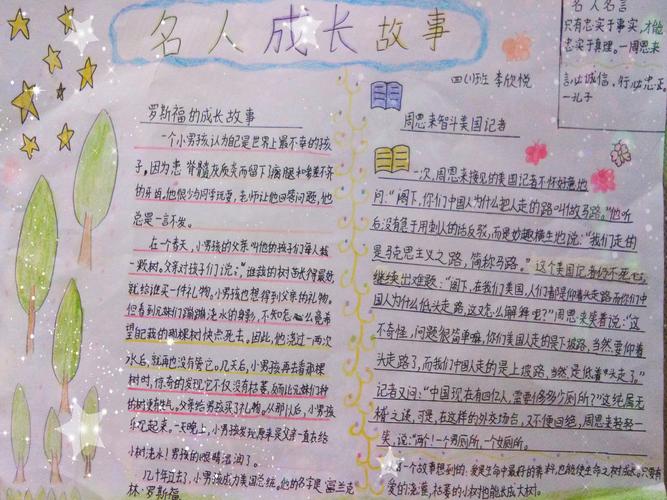 名人成长故事
四(1)班 李欣悦
名人名言
只有忠实于事实,才能
忠实于真理。一周恩来
言必诚信,行必忠正。
一孔子
罗斯福的成长故事
一个小男孩认为自己是世界上最不幸的孩
子,因为患脊髓灰质炎而留下了瘸腿和参差不齐
的牙齿。他很少与同学玩耍,老师让他回答问题,他
总是一言不发。
在一个春天,小男孩的父亲叫他的孩子们每人栽
一颗树。父亲对孩子们说:“谁栽的树苗长得最好,
就给谁买一件礼物。小男孩也想得到父亲的礼物。
但看到兄妹们蹦蹦跳跳浇水的身影,不知怎么竟希
望自己栽的那棵树快点死去。因此,他浇过一两次
水后,就再也没有管它。几天后,小男孩再去看那棵
树时,惊奇的发现它不仅没有枯萎,反而比兄妹们种
的树更有生气。父亲给男孩买了礼物。从那以后,小男孩
乐观起来。一天晚上,小男孩发现原来是父亲一直在给
小树浇水!男孩的眼睛湿润了。
几十年过去了,小男孩成为美国总统。他的名字是富兰克
林·罗斯福
周恩来智斗美国记者
一次,周恩来接见的美国记者不怀好意地
问:“阁下,你们中国人为什么把人走的路叫做马路。”他听
后没有急于用刺人的话反驳,而是妙趣横生地说:“我们走的
是马克思主义之路,简称马路。”这个美国记者仍不死心,
继续出难题:“阁下,在我们美国,人们都是仰着头走路,而你们中
国人为什么低头走路,这又怎么解释呢?”周恩来笑着说:“这
不奇怪,问题很简单嘛,你们美国人走的是下坡路,当然要仰着
头走路了,而我们中国人走的是上坡路,当然是低着头走了。”
记者又问:“中国现在有四亿人,需要修多少个厕所?”这纯属无
稽之谈,可是,在这样的外交场合,又不便回绝,周恩来轻轻一
笑,说:“两个!一个男厕所,一个女厕所。
这个故事想到的:爱是生命中最好的养料,
爱的浇灌,枯萎的小树也能长成大树。